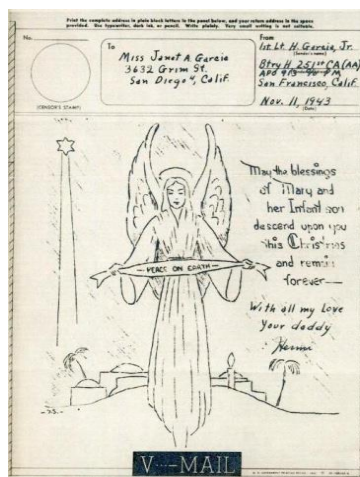 Print the complete address in plain block letters in the panel below, and your return address in the space
provided. Use typewriter, dark ink, or pencil. Write plainly. Very small writing is not suitable.
No.
(CENSOR'S STAMP)
To
Miss Janet A. Garcia
3632 Grim St.
San Diego 4, Calif.
From
1st Lt. H. Garcia, Jr.
(Sender's name)
Btry H 251st CA (AA)
APO 913 % PM
San Francisco, Calif.
Nov. 11, 1943
(Date)
May the blessings
of Mary and
her Infant son
descend upon you
this Christmas
and remain
forever—
With all my love
Your daddy
PEACE ON EARTH
V···-MAIL